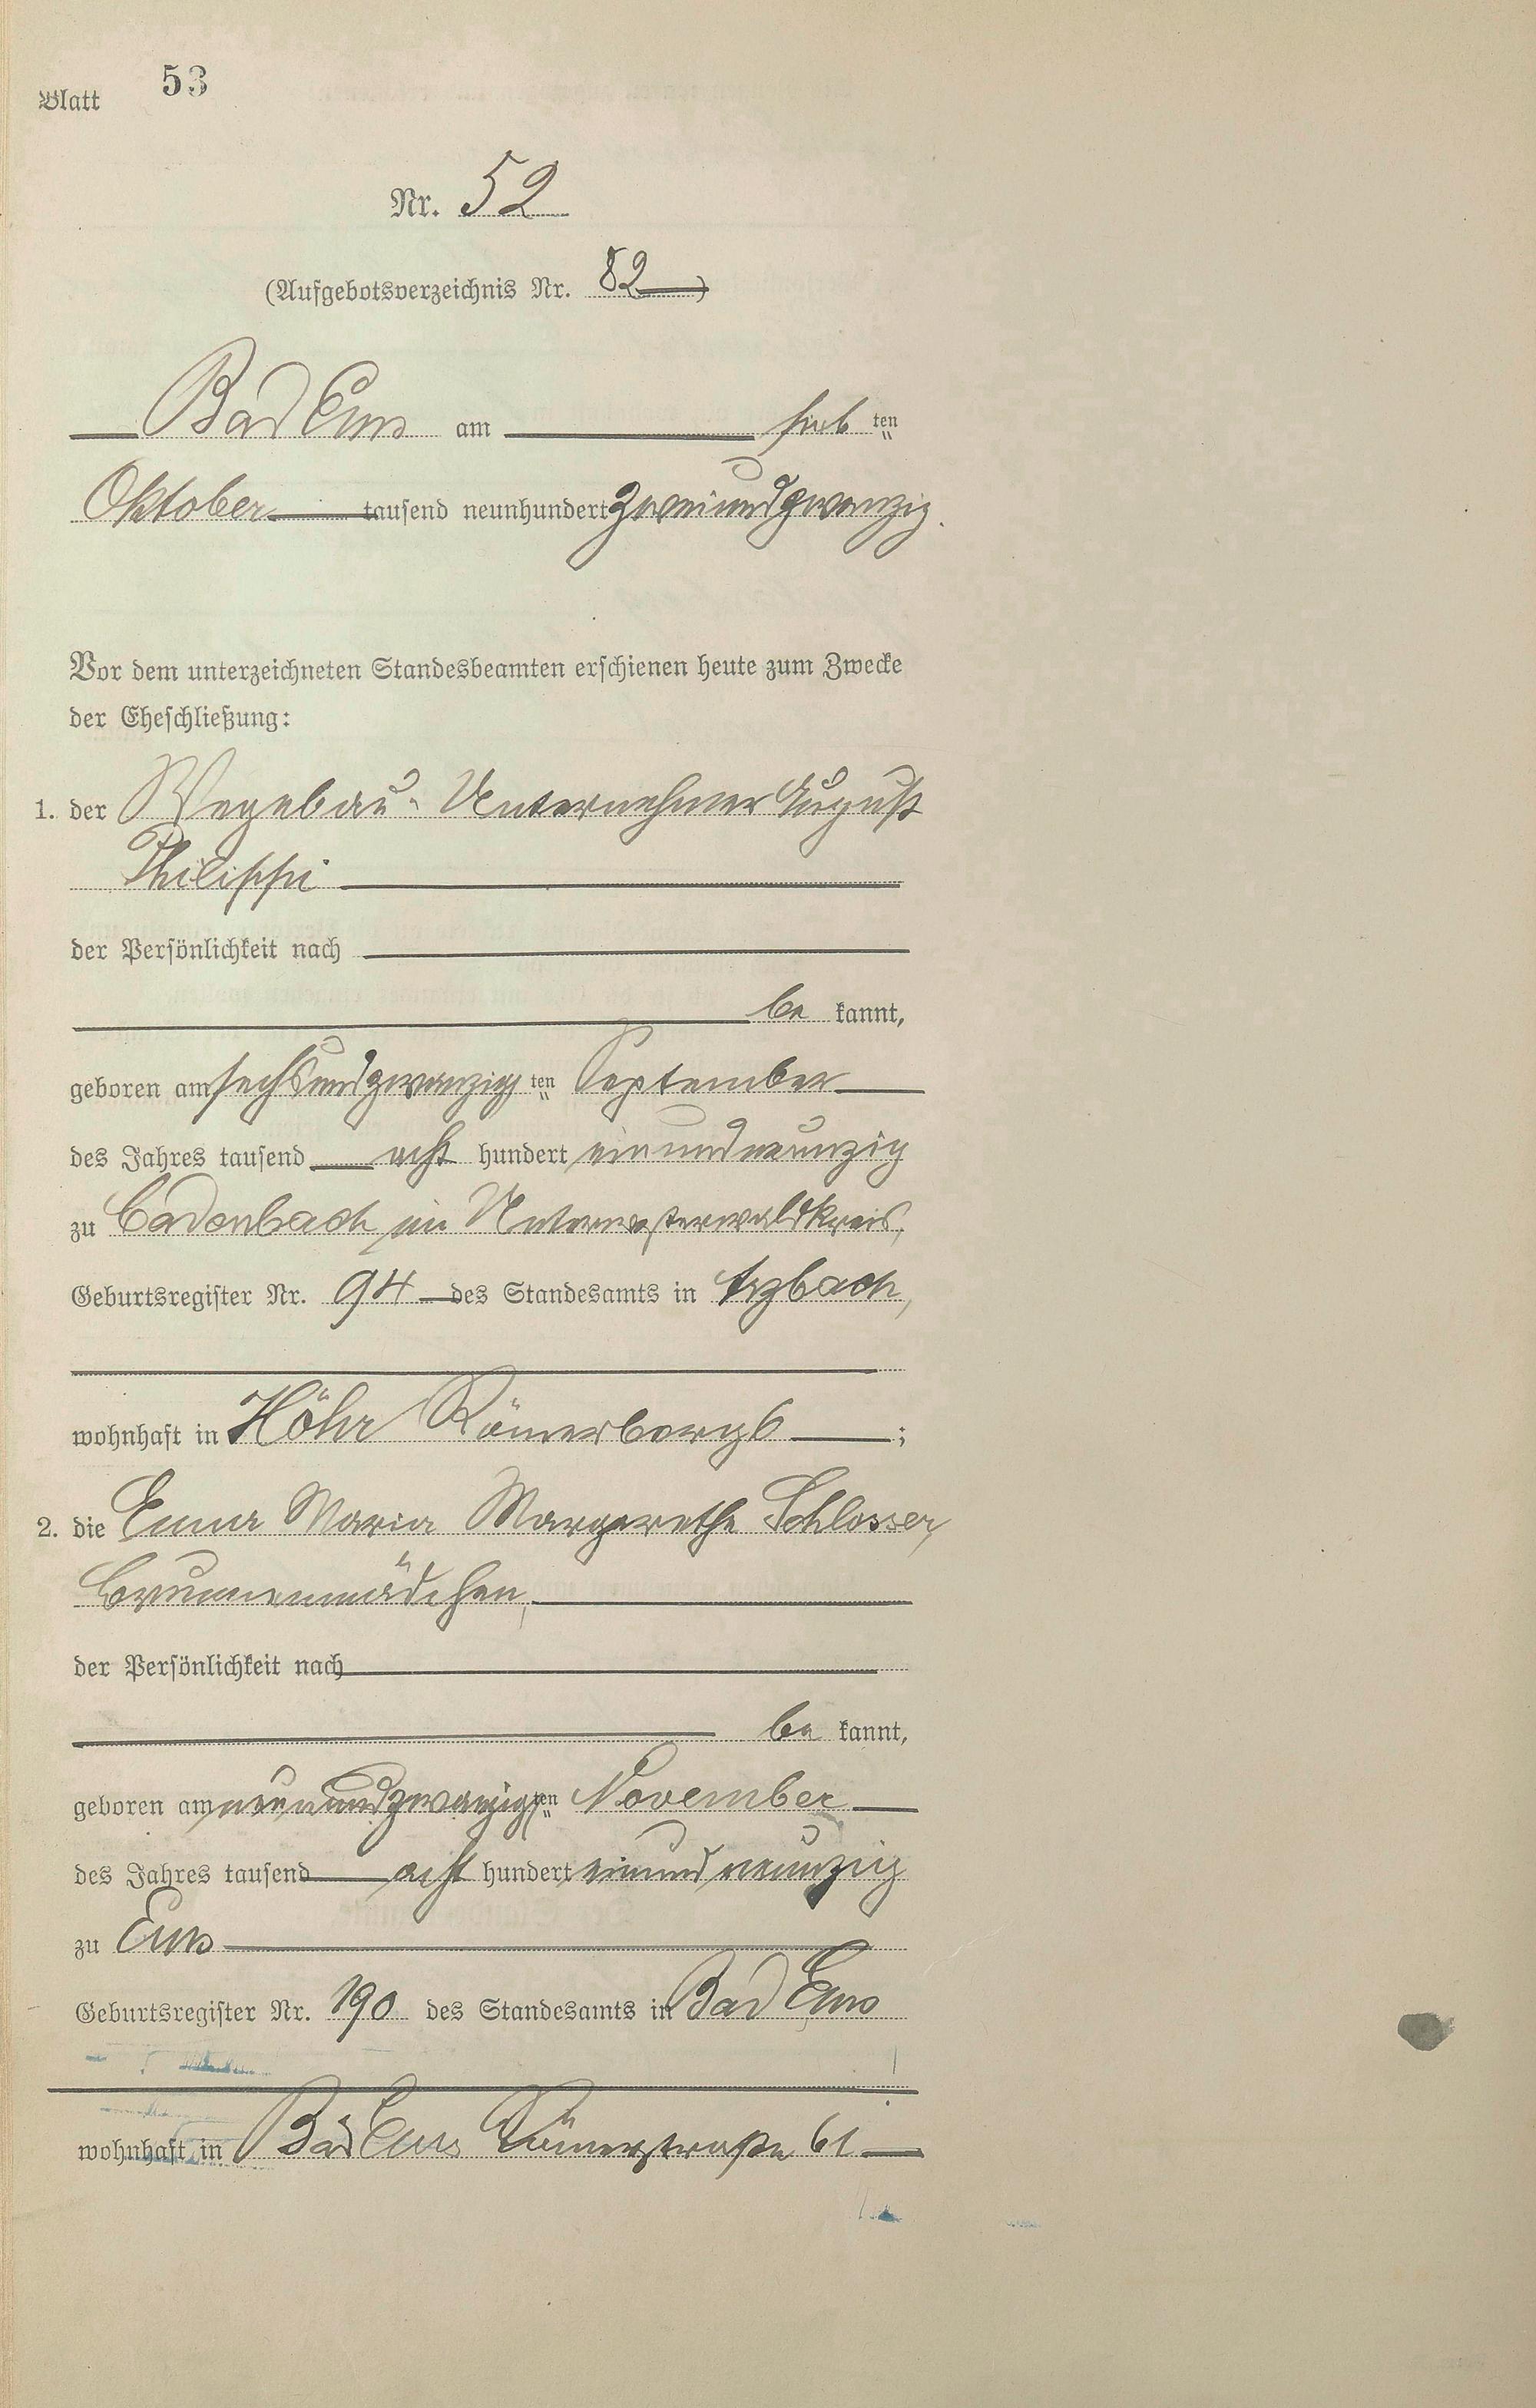 Blatt 53
Nr. 52
(Aufgebotsverzeichnis Nr. 82)
Bad Ems am sieb ten
Oktober tausend neunhundert zweiundzwanzig.
Vor dem unterzeichneten Standesbeamten erschienen heute zum Zwecke
der Eheschließung:
1. der Wegebau-Unternehmer August
Philippi
der Persönlichkeit nach
be kannt,
geboren am sechsundzwanzig ten September
des Jahres tausend acht hundert einundneunzig
zu Cadenbach im Unterwesterwaldkreis,
Geburtsregister Nr. 94 des Standesamts in Arzbach,
wohnhaft in Höhr Römerberg 6 ;
2. die Emma Maria Margarethe Schlosser,
Brunnenmädchen,
der Persönlichkeit nach
be kannt,
geboren am neunundzwanzig ten November
des Jahres tausend acht hundert einundneunzig
zu Ems
Geburtsregister Nr. 190 des Standesamts in Bad Ems
wohnhaft in Bad Ems Römerstraße 61